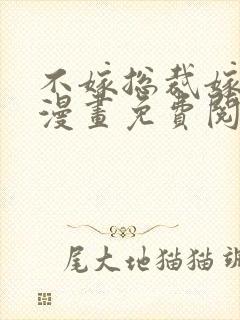 不嫁总裁嫁
漫畫免費閱
尾大地猫猫